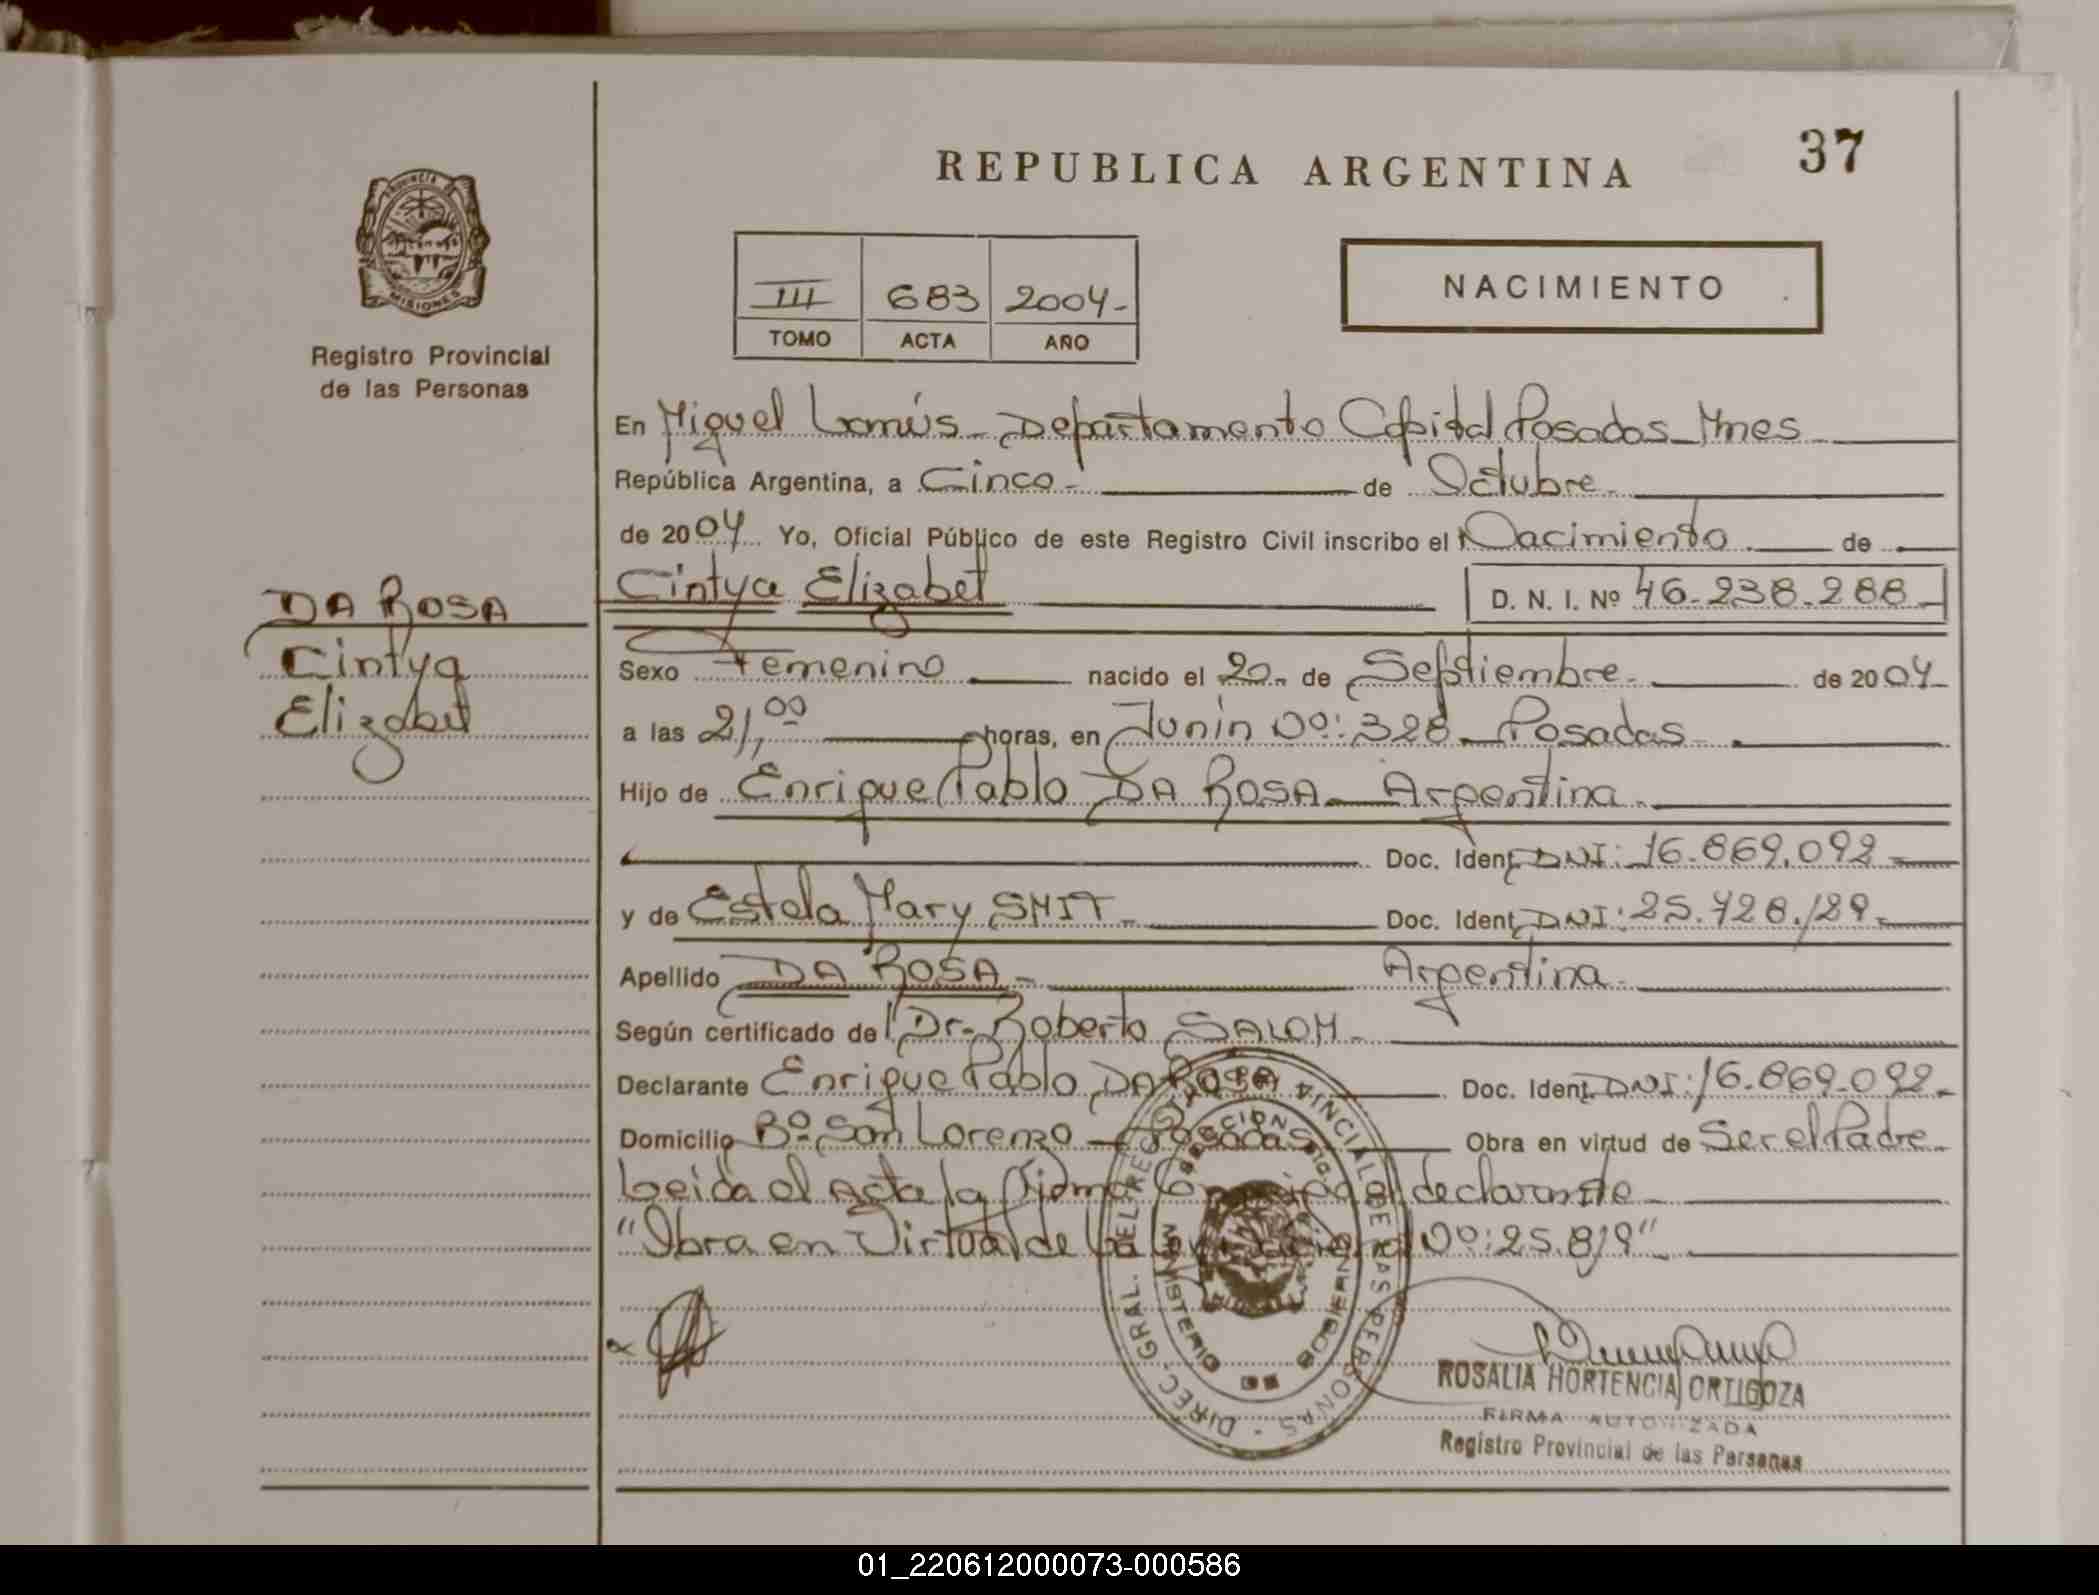 37
REPUBLICA ARGENTINA
PROVINCIA DE MISIONES
Registro Provincial
de las Personas
NACIMIENTO
III 683 2004-
TOMO ACTA AÑO
En Miguel Lanús - Departamento Capital Posadas - Mnes
República Argentina, a Cinco- de Octubre-
de 2004 Yo, Oficial Público de este Registro Civil inscribo el Nacimiento de
DA ROSA
Cintya
Elizabet
Cintya Elizabet D. N. I. Nº 46-238-288-
Sexo Femenino nacido el 20- de Septiembre- de 2004-
a las 21,00 horas, en Junin Nº: 328 - Posadas-
Hijo de Enrique Pablo DA ROSA - Argentina-
Doc. Ident. DNI: 16.869.092-
y de Estela Mary SMIT- Doc. Ident. DNI: 25.428.129-
Apellido DA ROSA- Argentina-
Según certificado de Dr. Roberto SALOM-
Declarante Enrique Pablo DA ROSA Doc. Ident. DNI: 16.869.092-
Domicilio Bº San Lorenzo - Posadas Obra en virtud de Ser el Padre-
Leida el Acta la firma el declarante-
"Obra en Virtud de la Ley Nº: 25.819"
DIREC. GRAL. DEL REG. PROVINCIAL DE LAS PERSONAS
MINISTERIO DE GOBIERNO
ROSALIA HORTENCIA ORTIGOZA
FIRMA AUTORIZADA
Registro Provincial de las Personas
01_220612000073-000586